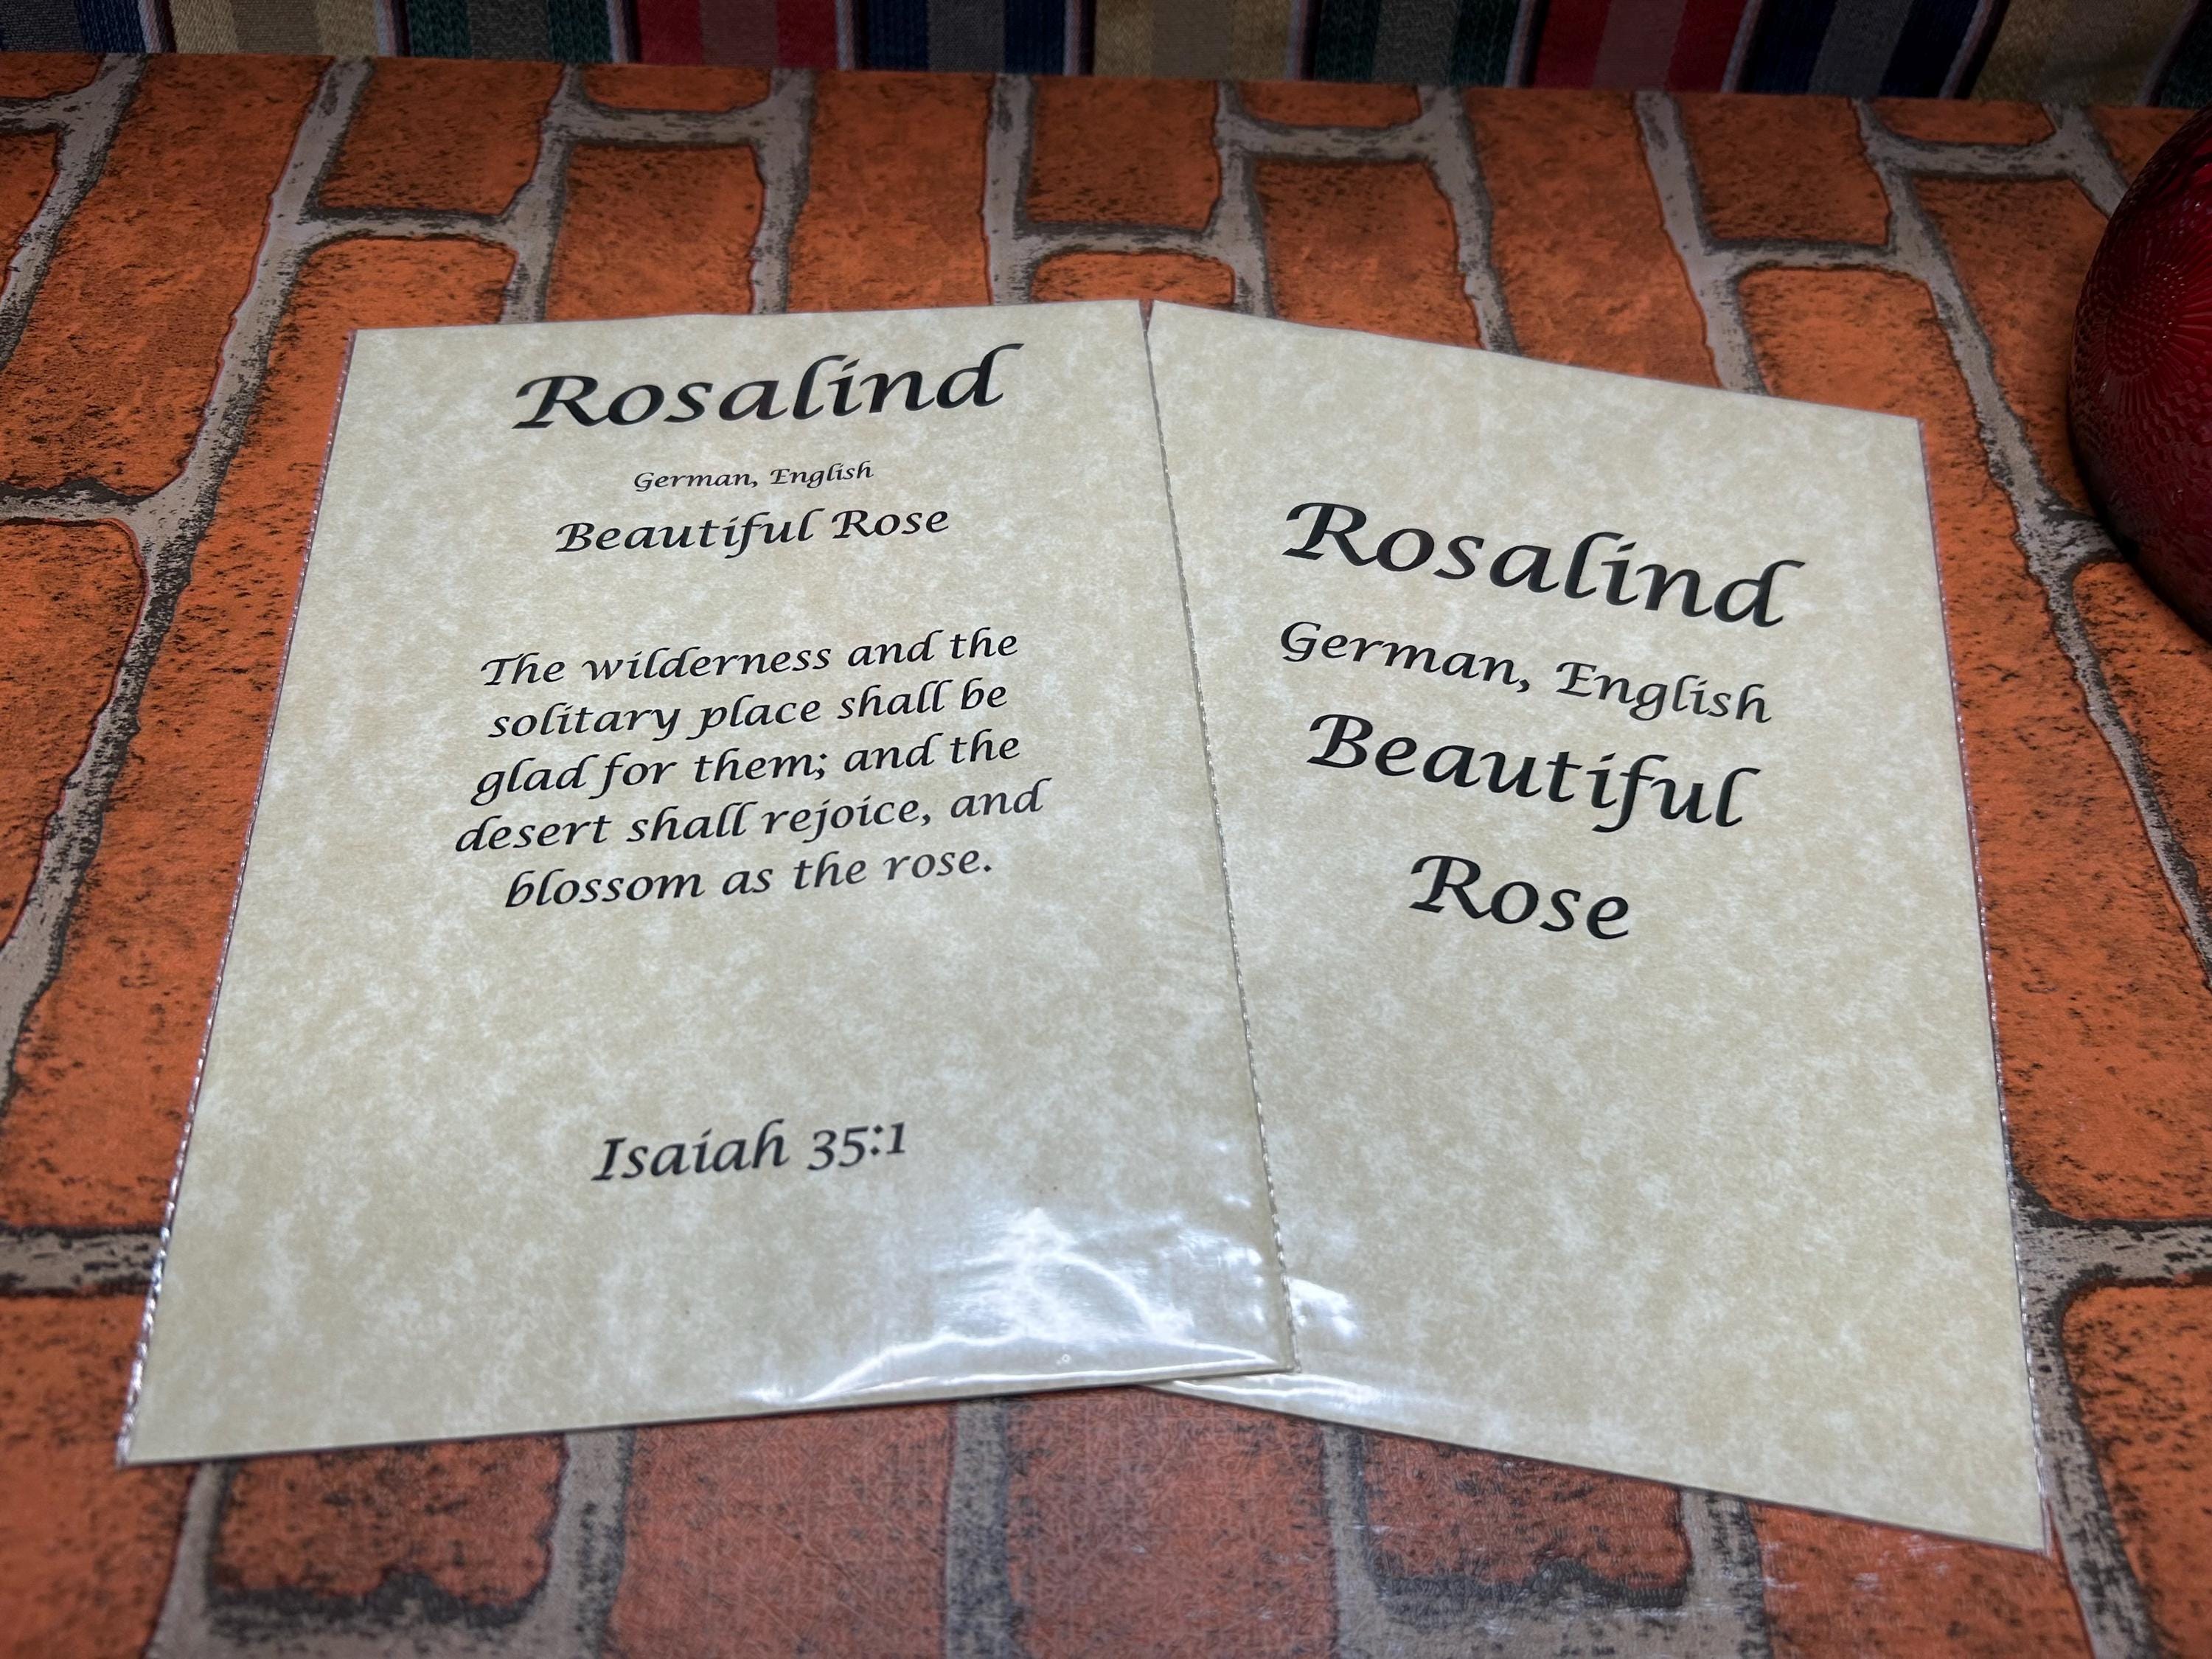 Rosalind
German, English
Beautiful Rose
The wilderness and the
solitary place shall be
glad for them; and the
desert shall rejoice, and
blossom as the rose.
Isaiah 35:1
Rosalind
German, English
Beautiful
Rose